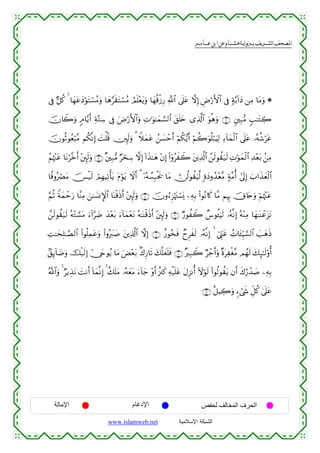 المصحف الشريف برواية هشام عن ابن عامر
۞ وَمَا مِن دَآبَّةٖ فِي ٱلۡأَرۡضِ إِلَّا عَلَى ٱللَّهِ رِزۡقُهَا وَيَعۡلَمُ مُسۡتَقَرَّهَا وَمُسۡتَوۡدَعَهَاۚ كُلّٞ فِي
كِتَٰبٖ مُّبِينٖ ۝ وَهُوَ ٱلَّذِي خَلَقَ ٱلسَّمَٰوَٰتِ وَٱلۡأَرۡضَ فِي سِتَّةِ أَيَّامٖ وَكَانَ
عَرۡشُهُۥ عَلَى ٱلۡمَآءِ لِيَبۡلُوَكُمۡ أَيُّكُمۡ أَحۡسَنُ عَمَلٗاۗ وَلَئِن قُلۡتَ إِنَّكُم مَّبۡعُوثُونَ
مِنۢ بَعۡدِ ٱلۡمَوۡتِ لَيَقُولَنَّ ٱلَّذِينَ كَفَرُوٓاْ إِنۡ هَٰذَآ إِلَّا سِحۡرٞ مُّبِينٞ ۝ وَلَئِنۡ أَخَّرۡنَا عَنۡهُمُ
ٱلۡعَذَابَ إِلَىٰٓ أُمَّةٖ مَّعۡدُودَةٖ لَّيَقُولُنَّ مَا يَحۡبِسُهُۥٓۗ أَلَا يَوۡمَ يَأۡتِيهِمۡ لَيۡسَ مَصۡرُوفًا
عَنۡهُمۡ وَحَاقَ بِهِم مَّا كَانُواْ بِهِۦ يَسۡتَهۡزِءُونَ ۝ وَلَئِنۡ أَذَقۡنَا ٱلۡإِنسَٰنَ مِنَّا رَحۡمَةٗ ثُمَّ
نَزَعۡنَٰهَا مِنۡهُ إِنَّهُۥ لَيَـُٔوسٞ كَفُورٞ ۝ وَلَئِنۡ أَذَقۡنَٰهُ نَعۡمَآءَ بَعۡدَ ضَرَّآءَ مَسَّتۡهُ لَيَقُولَنَّ
ذَهَبَ ٱلسَّيِّـَٔاتُ عَنِّيٓۚ إِنَّهُۥ لَفَرِحٞ فَخُورٌ ۝ إِلَّا ٱلَّذِينَ صَبَرُواْ وَعَمِلُواْ ٱلصَّٰلِحَٰتِ
أُوْلَٰٓئِكَ لَهُم مَّغۡفِرَةٞ وَأَجۡرٞ كَبِيرٞ ۝ فَلَعَلَّكَ تَارِكُۢ بَعۡضَ مَا يُوحَىٰٓ إِلَيۡكَ وَضَآئِقُۢ
بِهِۦ صَدۡرُكَ أَن يَقُولُواْ لَوۡلَآ أُنزِلَ عَلَيۡهِ كَنزٌ أَوۡ جَآءَ مَعَهُۥ مَلَكٌۚ إِنَّمَآ أَنتَ نَذِيرٞۚ وَٱللَّهُ
عَلَىٰ كُلِّ شَيۡءٖ وَكِيلٌ ۝
الحرف المخالف لحفص
الإدغام
الإمالة
الشبكة الإسلامية
www.islamweb.net